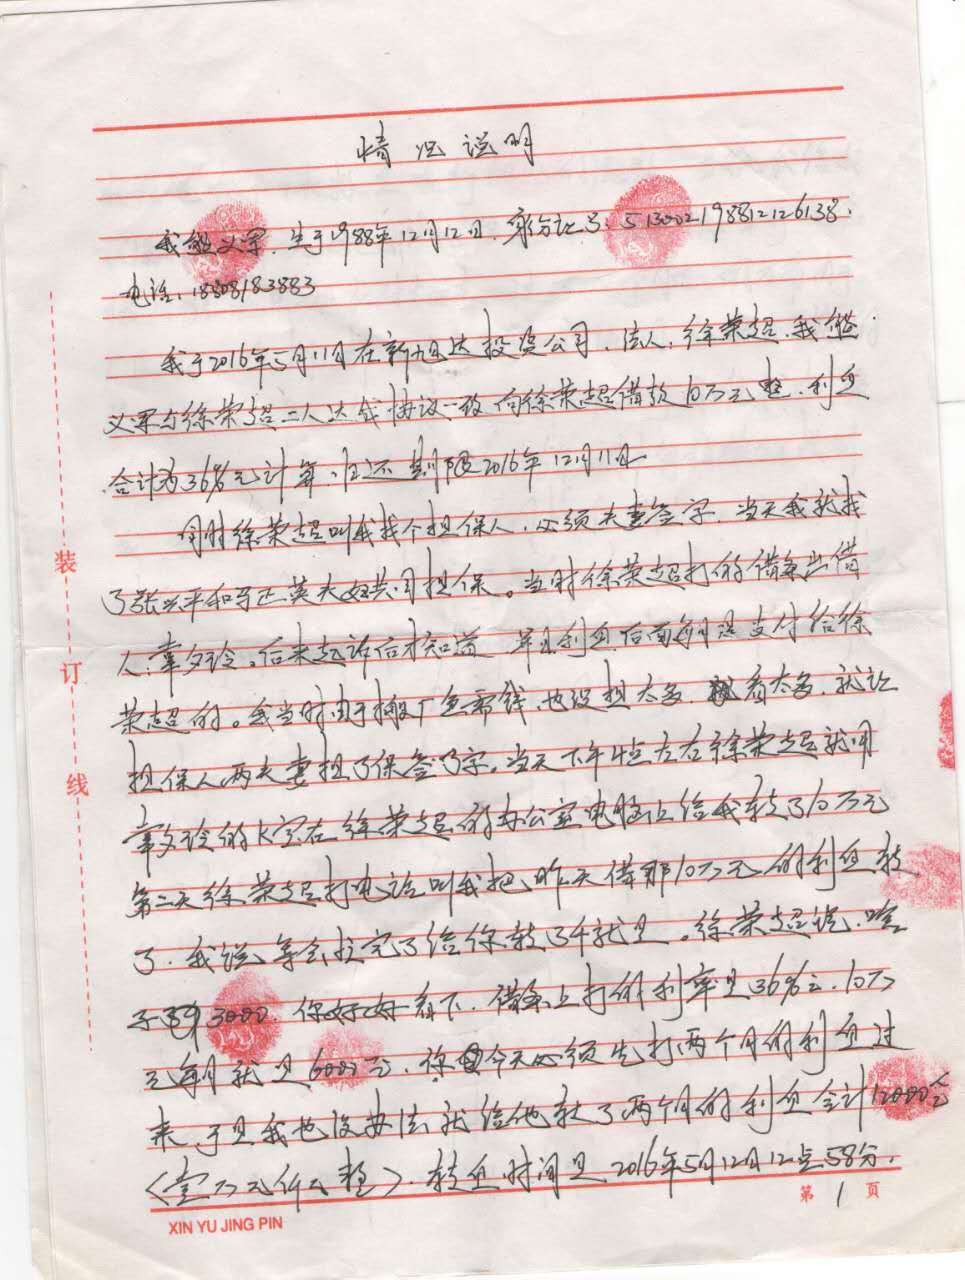 情况说明
我熊义军.生于1988年12月12日.身份证号:513002198812126138.
电话:18808183883
我于2016年5月11日在新旭达投资公司.法人.徐荣超.我熊
义军与徐荣超二人达成协议一致向徐荣超借款10万元整.利息
合计为36%元计算.归还期限2016年12月11日
同时徐荣超叫我找个担保人.必须夫妻签字.当天我就找
了张兴平和马正英夫妇共同担保。当时徐荣超打的借条出借
人.章夕玲.后来起诉后才知道 利息后面每月是支付给徐
荣超的。我当时由于搬厂急需钱.也没想太多 看太多.就让
担保人两夫妻担了保签了字。当天下午4点左右徐荣超就用
章夕玲的K宝在徐荣超的办公室电脑上给我转了10万元
第二天徐荣超打电话叫我把昨天借那10万元的利息转
了.我说等会忙完了给你转3千就是。徐荣超说.啥
子3000 你好好看下.借条上打的利率是36%元.10万
元每月就是6000元.你今天必须先打两个月的利息过
来.于是我也没办法就给他转了两个月的利息合计12000元
(壹万元仟元整).转息时间是2016年5月12日12点58分.
装
订
线
第1页
XIN YU JING PIN